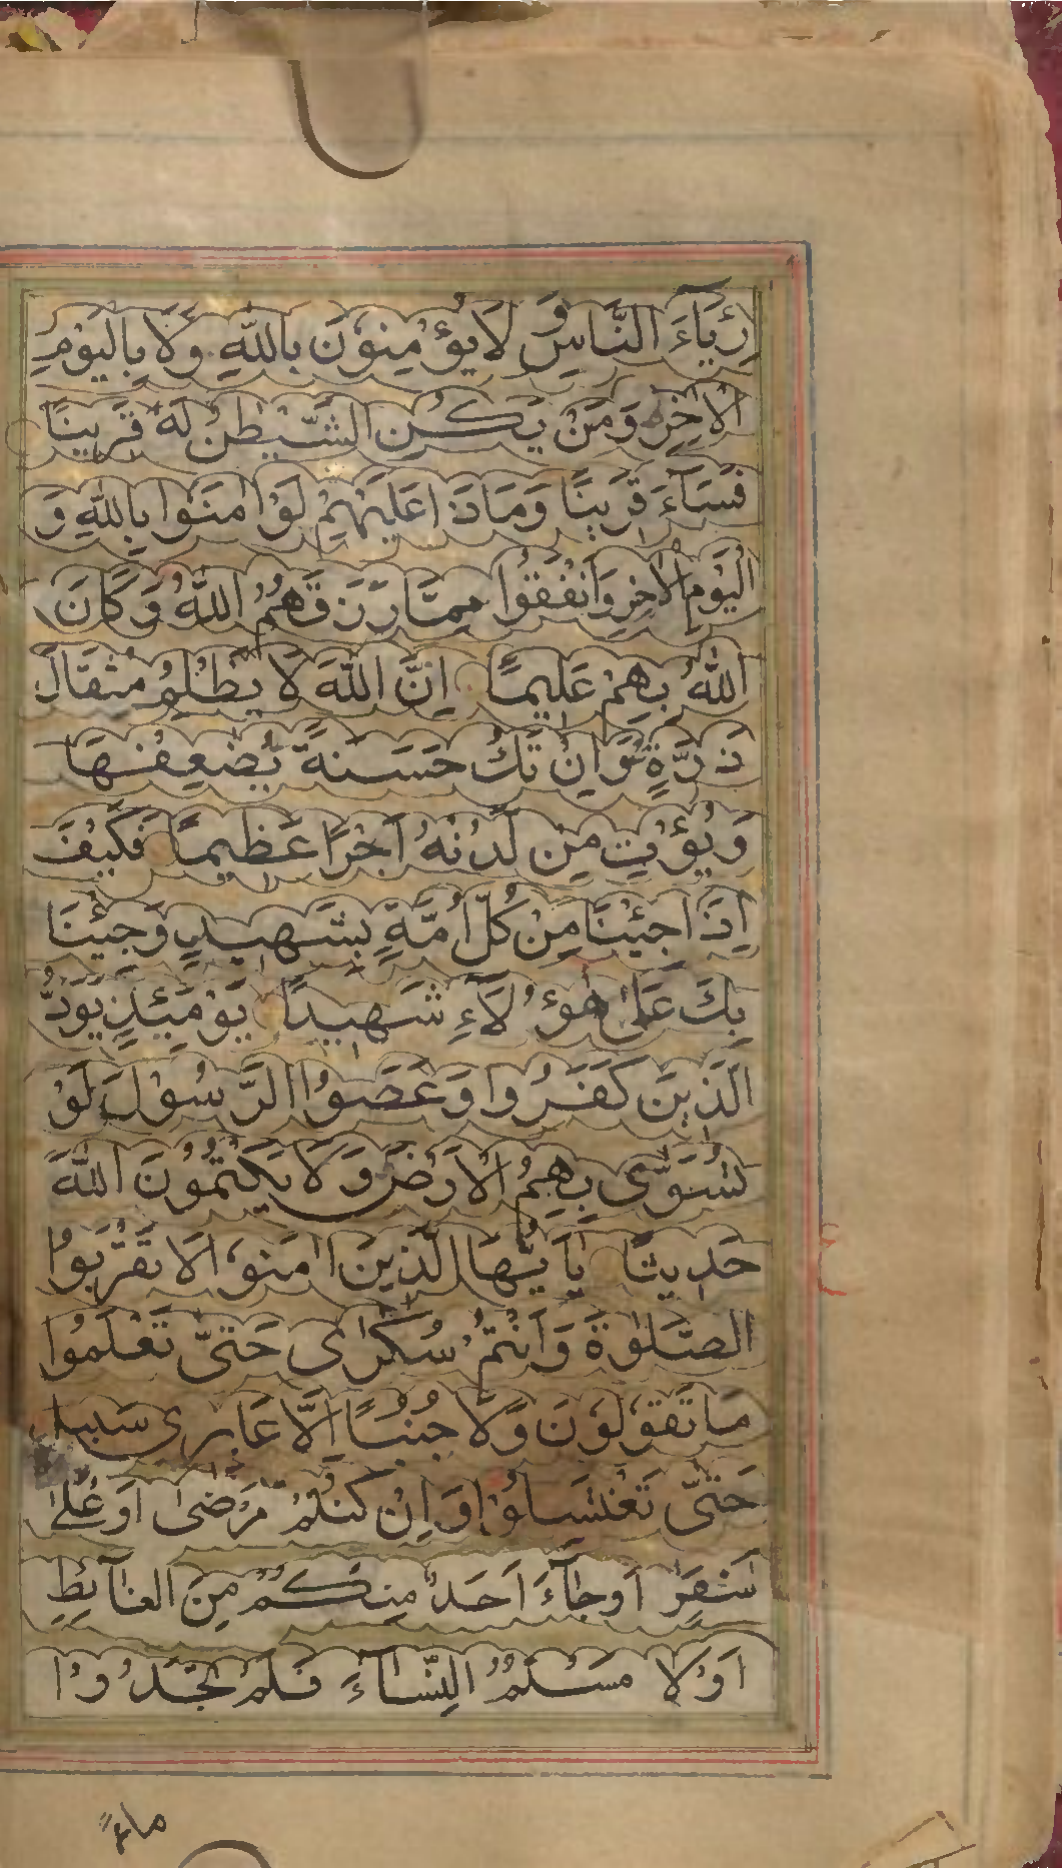 رِئَاءَ النَّاسِ وَ لَا يُؤْمِنُوْنَ بِاللّٰهِ وَلَا بِالْيَوْمِ
الْاٰخِرِ وَمَنْ يَكُنِ الشَّيْطٰنُ لَهٗ قَرِيْنًا
فَسَآءَ قَرِيْنًا وَمَاذَا عَلَيْهِمْ لَوْ اٰمَنُوْا بِاللّٰهِ وَ
الْيَوْمِ الْاٰخِرِ وَاَنْفَقُوْا مِمَّا رَزَقَهُمُ اللّٰهُ وَكَانَ
اللّٰهُ بِهِمْ عَلِيْمًا اِنَّ اللّٰهَ لَا يَظْلِمُ مِثْقَالَ
ذَرَّةٍ وَاِنْ تَكُ حَسَنَةً يُّضٰعِفْهَا
وَيُؤْتِ مِنْ لَّدُنْهُ اَجْرًا عَظِيْمًا فَكَيْفَ
اِذَا جِئْنَا مِنْ كُلِّ اُمَّةٍ بِشَهِيْدٍ وَّجِئْنَا
بِكَ عَلٰى هٰؤُلَآءِ شَهِيْدًا يَوْمَئِذٍ يَّوَدُّ
الَّذِيْنَ كَفَرُوْا وَعَصَوُا الرَّسُوْلَ لَوْ
تُسَوّٰى بِهِمُ الْاَرْضُ وَلَا يَكْتُمُوْنَ اللّٰهَ
حَدِيْثًا يٰٓاَيُّهَا الَّذِيْنَ اٰمَنُوْا لَا تَقْرَبُوا
الصَّلٰوةَ وَاَنْتُمْ سُكٰرٰى حَتّٰى تَعْلَمُوْا
مَا تَقُوْلُوْنَ وَلَا جُنُبًا اِلَّا عَابِرِيْ سَبِيْلٍ
حَتّٰى تَغْتَسِلُوْا وَاِنْ كُنْتُمْ مَّرْضٰى اَوْ عَلٰى
سَفَرٍ اَوْ جَآءَ اَحَدٌ مِّنْكُمْ مِّنَ الْغَآئِطِ
اَوْ لَا مَسْتُمُ النِّسَآءَ فَلَمْ تَجِدُوْا
مَآءً